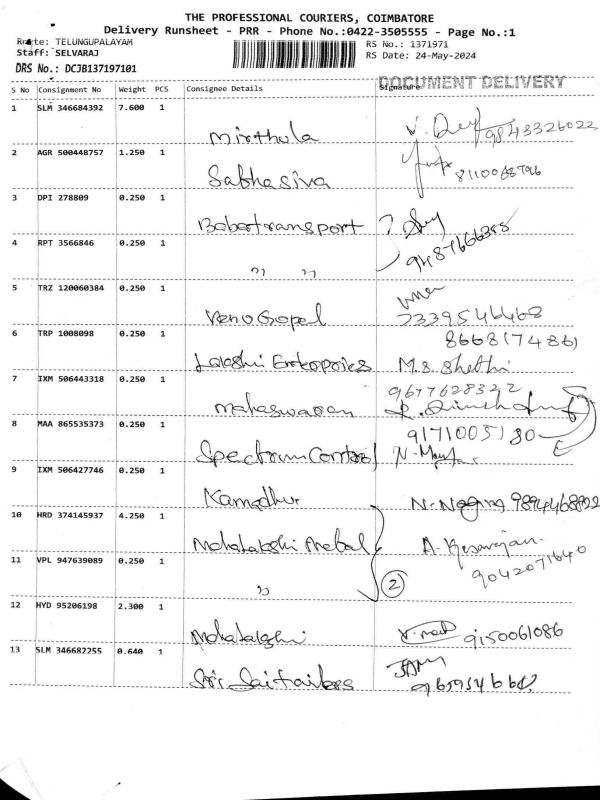 THE PROFESSIONAL COURIERS, COIMBATORE
Delivery Runsheet - PRR - Phone No.:0422-3505555 - Page No.:1
Route: TELUNGUPALAYAM
Staff: SELVARAJ
DRS No.: DCJB137197101
RS No.: 1371971
RS Date: 24-May-2024
DOCUMENT DELIVERY
S No Consignment No Weight PCS Consignee Details Signature
1 SLM 346684392 7.600 1
Mirthula 9843326022
2 AGR 500448757 1.250 1
Sabhasiva 8110068796
3 DPI 278809 0.250 1
Babatransport
4 RPT 3566846 0.250 1
" "
5 TRZ 120060384 0.250 1
VenoGopal 7339546468
6 TRP 1008098 0.250 1
8668174861
M.S. Shethi
7 IXM 506443318 0.250 1
9677628322
Maheswaran
8 MAA 865535373 0.250 1
9171005130
Spectrum Control
9 IXM 506427746 0.250 1
Kamadhur 9894468802
10 HRD 374145937 4.250 1
Mahalakshi Metal
11 VPL 947639089 0.250 1
9042071640
" 2
12 HYD 95206198 2.300 1
Mahalakshi 9150061086
13 SLM 346682255 0.640 1
Sri Saitailors